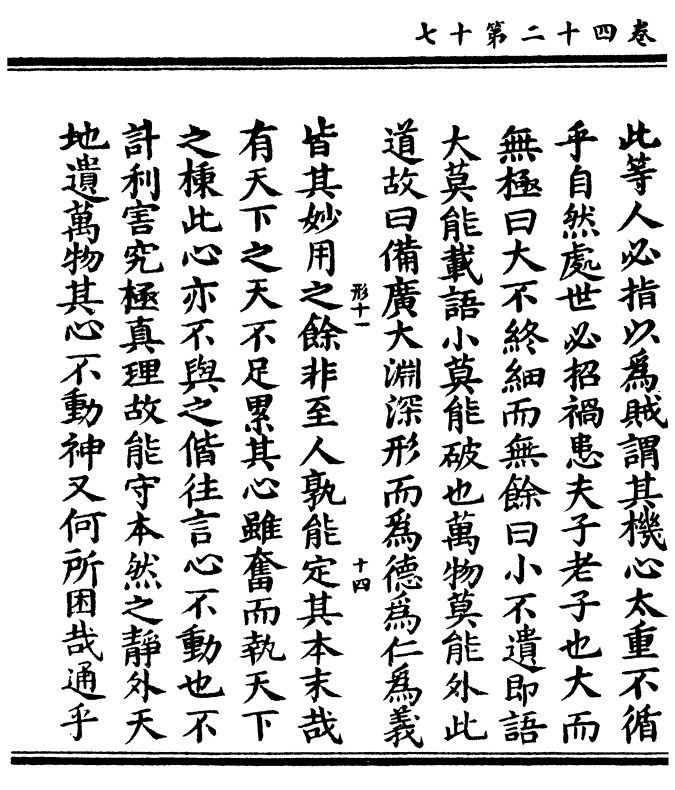 卷四十二第十七
此等人必指以爲賊謂其機心太重不循
乎自然處世必招禍患夫子老子也大而
無極曰大不終細而無餘曰小不遺即語
大莫能載語小莫能破也萬物莫能外此
道故曰備廣大淵深形而爲德爲仁爲義
形十一
十四
皆其妙用之餘非至人孰能定其本末哉
有天下之天不足累其心雖奮而執天下
之棅此心亦不與之偕往言心不動也不
計利害究極真理故能守本然之靜外天
地遺萬物其心不動神又何所困哉通乎